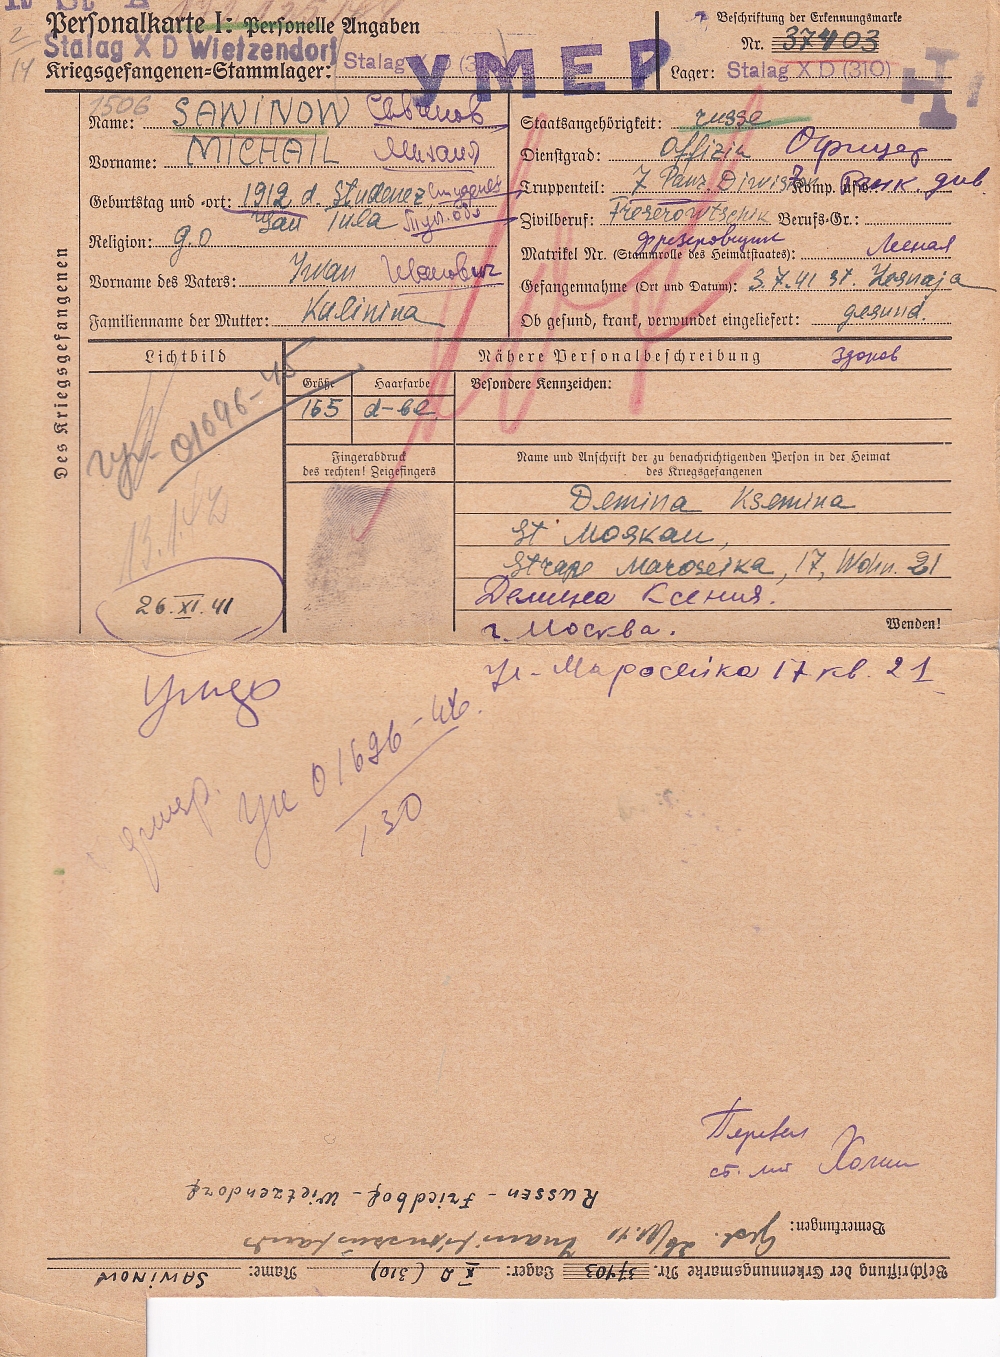 Personalkarte I: Personelle Angaben
Beschriftung der Erkennungsmarke
Nr. 37403
Stalag X D Wietzendorf
УМЕР
Kriegsgefangenen-Stammlager: Stalag
Lager: Stalag X D (310)
Des Kriegsgefangenen
1506
Name: SAWINOW Савинов
Vorname: MICHAIL Михаил
Geburtstag und -ort: 1912 d. Studenez Студенец
Gau Tula Тул. обл
Religion: g.o
Vorname des Vaters: Iwan Иванович
Familienname der Mutter: Kalinina
Staatsangehörigkeit: russe
Dienstgrad: Offizir Офицер
Truppenteil: 7 Panz. Division Komp. usw.: 7 Танк. див
Zivilberuf: Freserowtschik Berufs-Gr.:
фрезеровщик
Matrikel Nr. (Stammrolle des Heimatstaates): Лесная
Gefangennahme (Ort und Datum): 3.7.41 st. Lesnaja
Ob gesund, krank, verwundet eingeliefert: gesund.
Lichtbild
Nähere Personalbeschreibung здоров
Größe Haarfarbe Besondere Kennzeichen:
165 d-bl
01696-45
13.1.42
26.XI.41
Fingerabdruck
des rechten! Zeigefingers
Name und Anschrift der zu benachrichtigenden Person in der Heimat
des Kriegsgefangenen
Demina Ksemina
St Moskau,
Strase Maroseika, 17, Wohn. 21
Демина Ксения.
г. Москва.
Wenden!
ул- Маросейка 17 кв. 21
01696-46.
130
Перевел
ст. лит
Russen - Friedhof - Wietzendorf
Bemerkungen: Gest. 26/11.41
Beschriftung der Erkennungsmarke Nr. 37403 Lager: X D (310) Name: SAWINOW